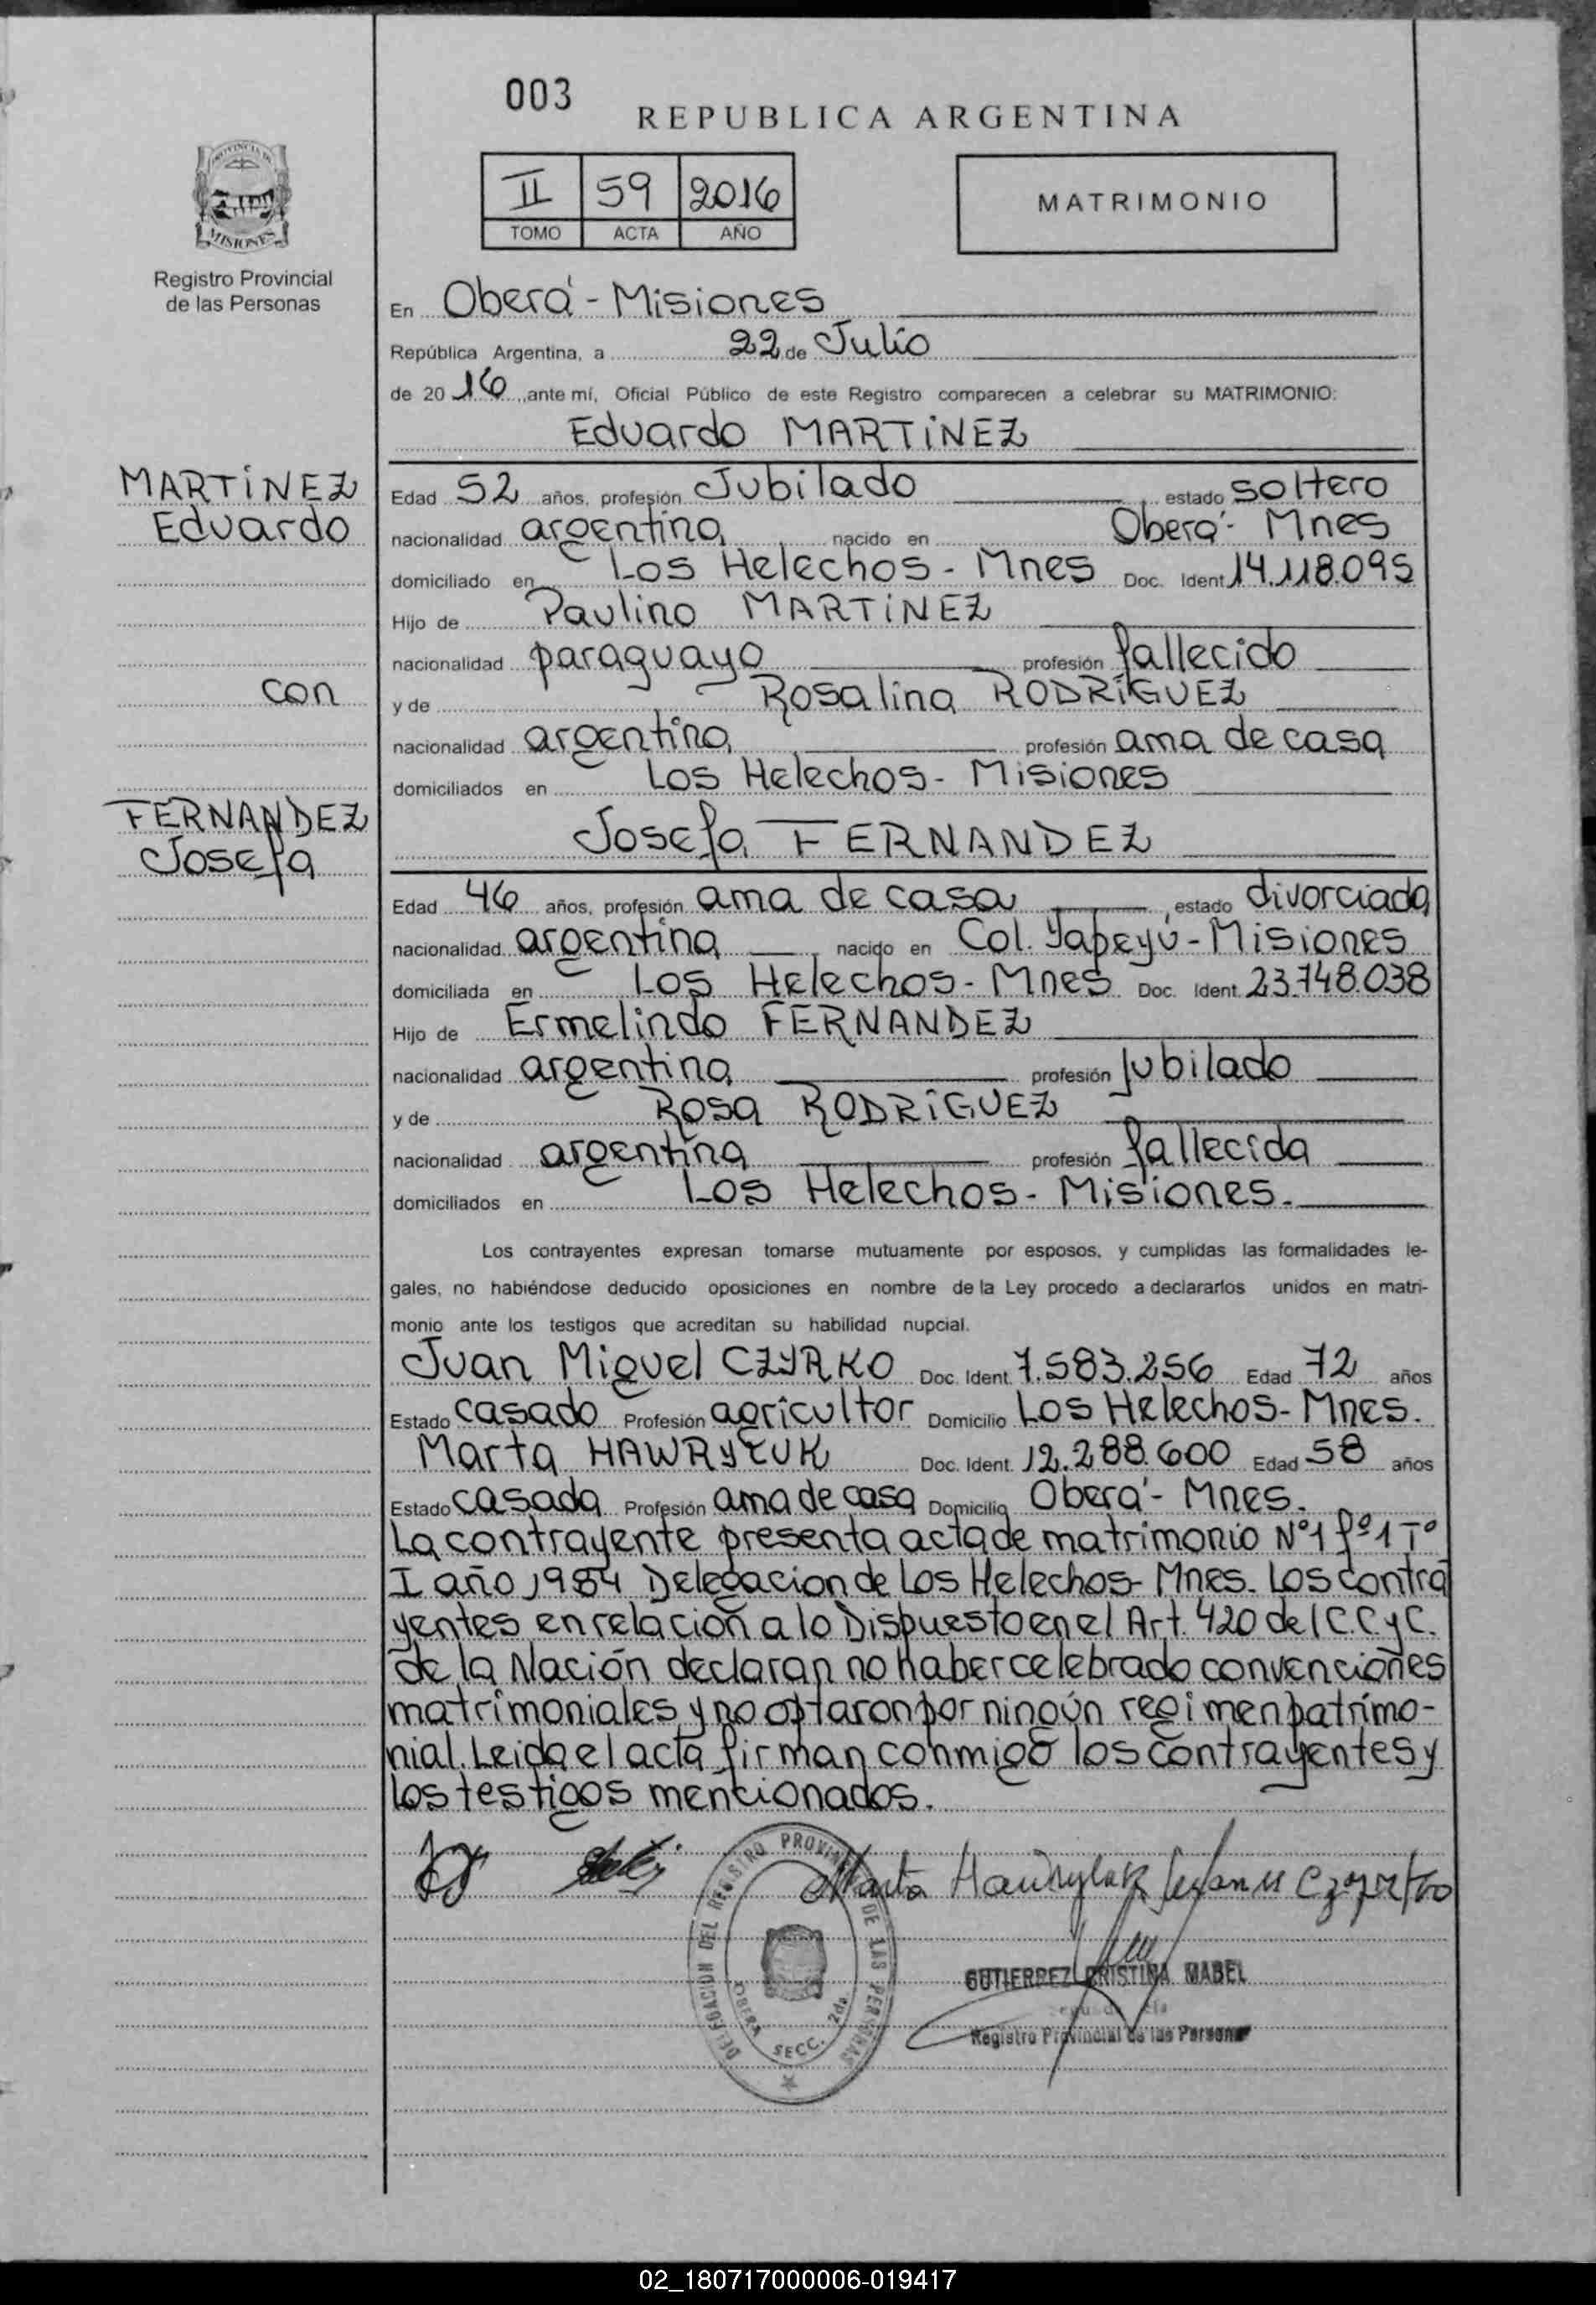 003
REPUBLICA ARGENTINA
II 59 2016
TOMO ACTA AÑO
MATRIMONIO
PROVINCIA DE
MISIONES
Registro Provincial
de las Personas
En Oberá - Misiones
República Argentina, a 22 de Julio
de 20 16, ante mí, Oficial Público de este Registro comparecen a celebrar su MATRIMONIO:
Eduardo MARTíNEZ
MARTíNEZ
Eduardo
con
FERNANDEZ
Josefa
Edad 52 años, profesión Jubilado estado soltero
nacionalidad argentina nacido en Oberá - Mnes
domiciliado en Los Helechos - Mnes Doc. Ident. 14.118.095
Hijo de Paulino MARTíNEZ
nacionalidad paraguayo profesión fallecido
y de Rosalina RODRíGUEZ
nacionalidad argentina profesión ama de casa
domiciliados en Los Helechos - Misiones
Josefa FERNANDEZ
Edad 46 años, profesión ama de casa, estado divorciada
nacionalidad argentina nacido en Col. Yapeyú - Misiones
domiciliada en Los Helechos - Mnes Doc. Ident. 23.748.038
Hijo de Ermelindo FERNANDEZ
nacionalidad argentina profesión jubilado
y de Rosa RODRíGUEZ
nacionalidad argentina profesión fallecida
domiciliados en Los Helechos - Misiones.
Los contrayentes expresan tomarse mutuamente por esposos, y cumplidas las formalidades le-
gales, no habiéndose deducido oposiciones en nombre de la Ley procedo a declararlos unidos en matri-
monio ante los testigos que acreditan su habilidad nupcial.
Juan Miguel CZYRKO Doc. Ident. 7.583.256 Edad 72 años
Estado casado Profesión agricultor Domicilio Los Helechos - Mnes.
Marta HAWRYŁUK Doc. Ident. 12.288.600 Edad 58 años
Estado casada Profesión ama de casa Domicilio Oberá - Mnes.
La contrayente presenta acta de matrimonio Nº1 fº1 Tº
I año 1984 Delegacion de Los Helechos - Mnes. Los contra
yentes en relación a lo Dispuesto en el Art. 420 del C.C.y C.
de la Nación declaran no haber celebrado convenciones
matrimoniales y no optaron por ningún regimen patrimo-
nial. Leida el acta firman conmigo los contrayentes y
los testigos mencionados.
Marta Hawryluk
DELEGACION DEL REGISTRO PROVINCIAL DE LAS PERSONAS
OBERA SECC. 2da
GUTIERREZ CRISTINA MABEL
Registro Provincial de las Personas
02_180717000006-019417